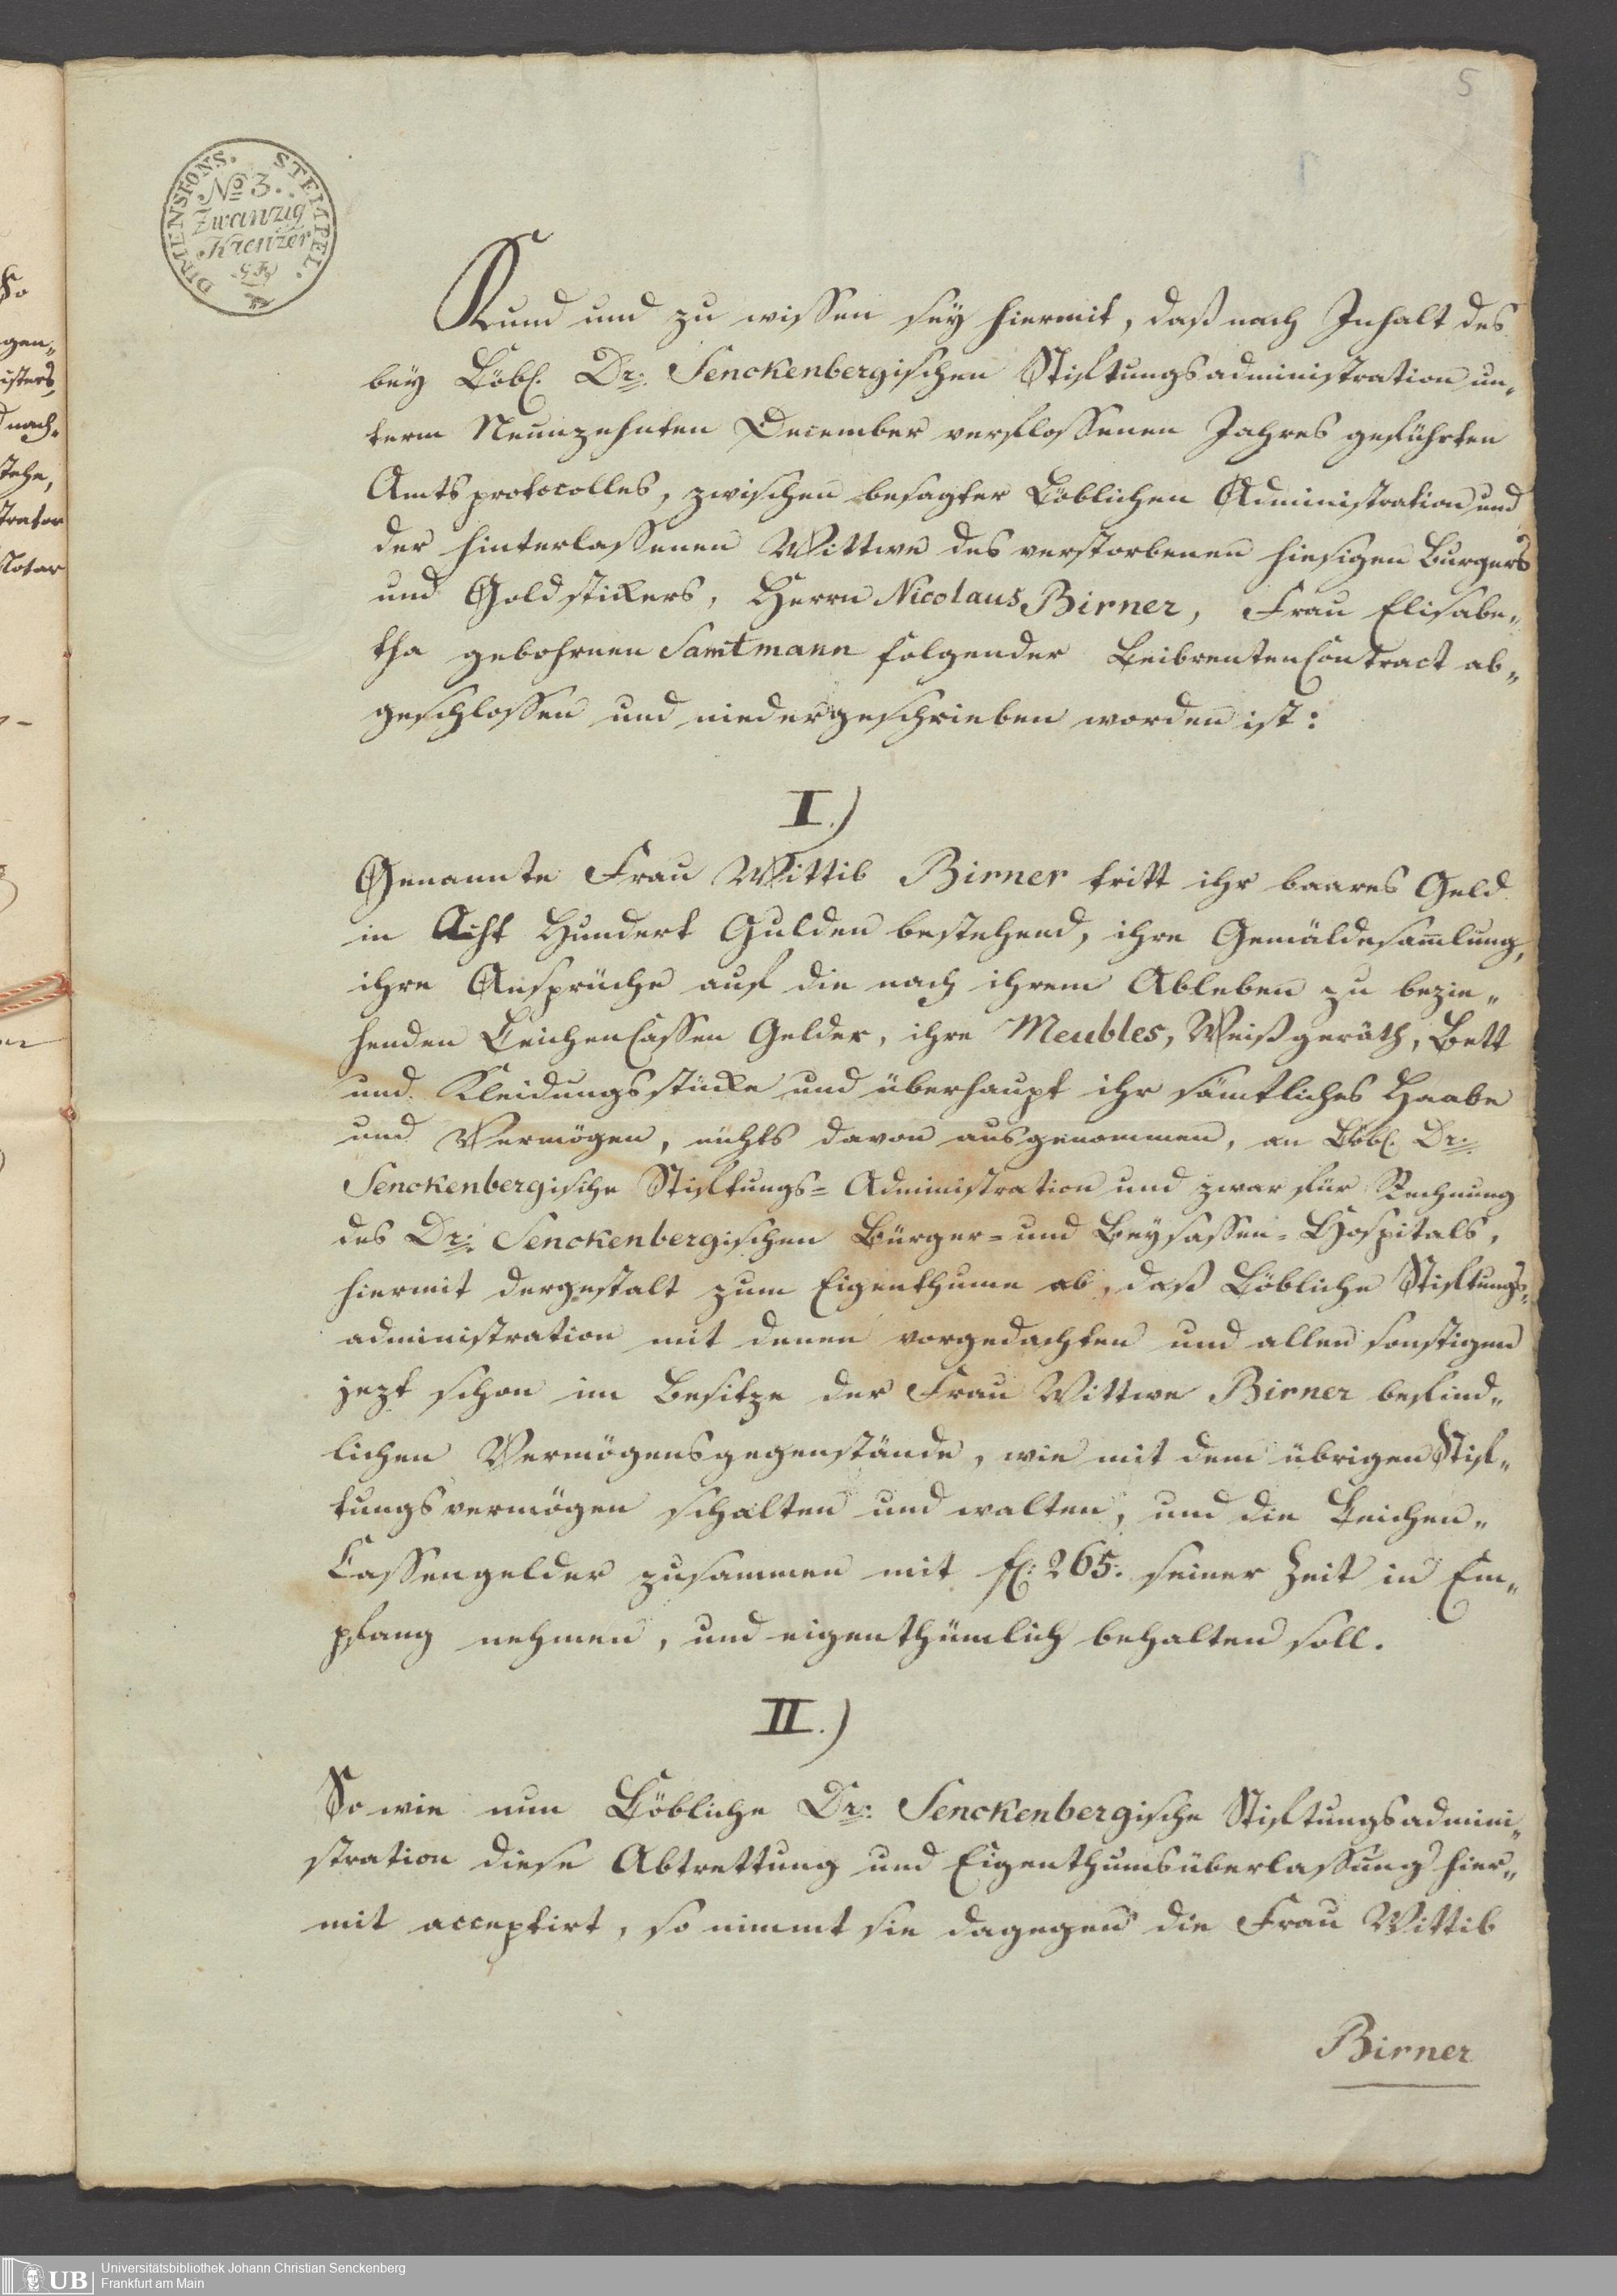 5
DIMENSIONS. STEMPEL.
No 3.
Zwanzig
Kreuzer
Kund und zu wissen sey hiermit, daß nach Inhalt des
bey Löbl. Dr. Senckenbergischen Stiftungsadministration un„
term Neunzehnten December verflossenen Jahres geführten
Amtsprotocolles, zwischen besagter Löblichen Administration und
der hinterlassenen Wittwe des verstorbenen hiesigen Burgers
und Goldstickers, Herrn Nicolaus Birner, Frau Elisabe„
tha gebohrnen Samtmann folgender Leibrenten Contract ab„
geschlossen und niedergeschrieben worden ist:
I.)
Genannte Frau Wittib Birner tritt ihr baares Geld
in Acht Hundert Gulden bestehend, ihre Gemäldesam̅lung,
ihre Ansprüche auf die nach ihrem Ableben zu bezie„
henden Leichen Cassen Gelder, ihre Meubles, Weißgeräth, Bett
und Kleidungsstücke und überhaupt ihr sämtliches Haabe
und Vermögen, nichts davon ausgenommen, an Löbl. Dr.
Senckenbergische Stiftungs= Administration und zwar für Rechnung
des Dr. Senckenbergischen Bürger= und Beysassen= Hospitals,
hiermit dergestalt zum Eigenthume ab, daß Löbliche Stiftungs„
administration mit denen vorgedachten und allen sonstigen
jezt schon im Besitze der Frau Wittwe Birner befind„
lichen Vermögensgegenstände, wie mit dem übrigen Stif„
tungsvermögen schalten und walten, und die Leichen„
Cassengelder zusammen mit f. 265. seiner Zeit in Em„
pfang nehmen, und eigenthümlich behalten soll.
II.)
So wie nun Löbliche Dr. Senckenbergische Stiftungsadmini„
stration diese Abtrettung und Eigenthumsüberlassung hier„
mit acceptirt, so nimmt sie dagegen die Frau Wittib
Birner
gen„
isters,
nach„
stehe,
trator
Notar
UB
Universitätsbibliothek Johann Christian Senckenberg
Frankfurt am Main